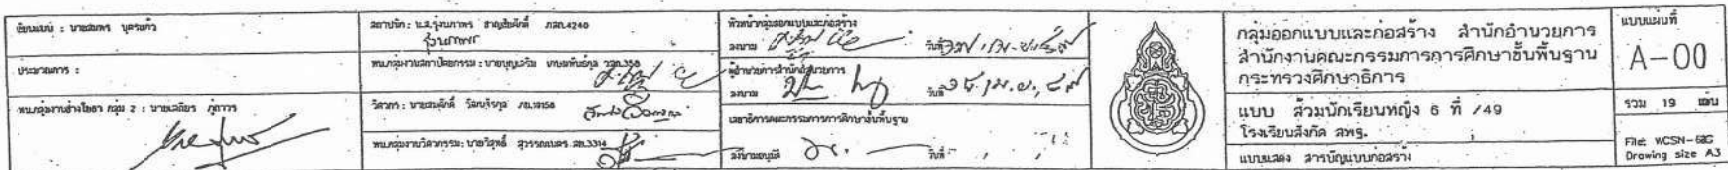 เขียนแบบ : นายสมพร บุตรแก้ว
ประมาณการ :
หน.กลุ่มงานช่างโยธา กลุ่ม 2 : นายเสถียร ภู่ถาวร
สถาปนิก : น.ส.รุ่งนภาพร ชาญชัยศักดิ์ ภสถ.4240
รุ่งนภาพร
หน.กลุ่มงานสถาปัตยกรรม : นายบุญเสริม
วิศวกร : นายสมศักดิ์
หน.กลุ่มงานวิศวกรรม: นายวิสุทธิ์ สุวรรณเนตร สย.3314
หัวหน้ากลุ่มออกแบบและก่อสร้าง
ลงนาม วันที่
ผู้อำนวยการสำนักอำนวยการ
ลงนาม วันที่
เลขาธิการคณะกรรมการการศึกษาขั้นพื้นฐาน
ลงนามอนุมัติ วันที่
กลุ่มออกแบบและก่อสร้าง สำนักอำนวยการ
สำนักงานคณะกรรมการการศึกษาขั้นพื้นฐาน
กระทรวงศึกษาธิการ
แบบ ส้วมนักเรียนหญิง 6 ที่ /49
โรงเรียนสังกัด สพฐ.
แบบแสดง สารบัญแบบก่อสร้าง
แบบแผ่นที่
A-00
รวม 19 แผ่น
File: WCSN-60G
Drawing size A3